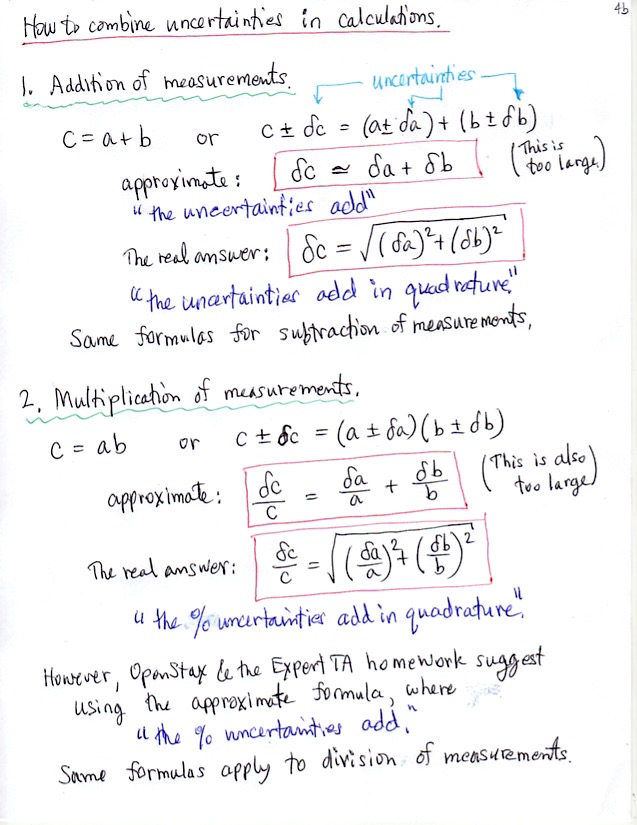 4b
How to combine uncertainties in calculations.
1. Addition of measurements.
uncertainties
c = a + b or c ± δc = (a ± δa) + (b ± δb)
approximate: δc ≃ δa + δb (This is too large.)
"the uncertainties add"
The real answer: δc = √((δa)² + (δb)²)
"the uncertainties add in quadrature."
Same formulas for subtraction of measurements.
2. Multiplication of measurements.
c = ab or c ± δc = (a ± δa)(b ± δb)
approximate: δc/c = δa/a + δb/b (This is also too large)
The real answer: δc/c = √((δa/a)² + (δb/b)²)
"the % uncertainties add in quadrature."
However, OpenStax & the Expert TA homework suggest
using the approximate formula, where
"the % uncertainties add."
Same formulas apply to division of measurements.